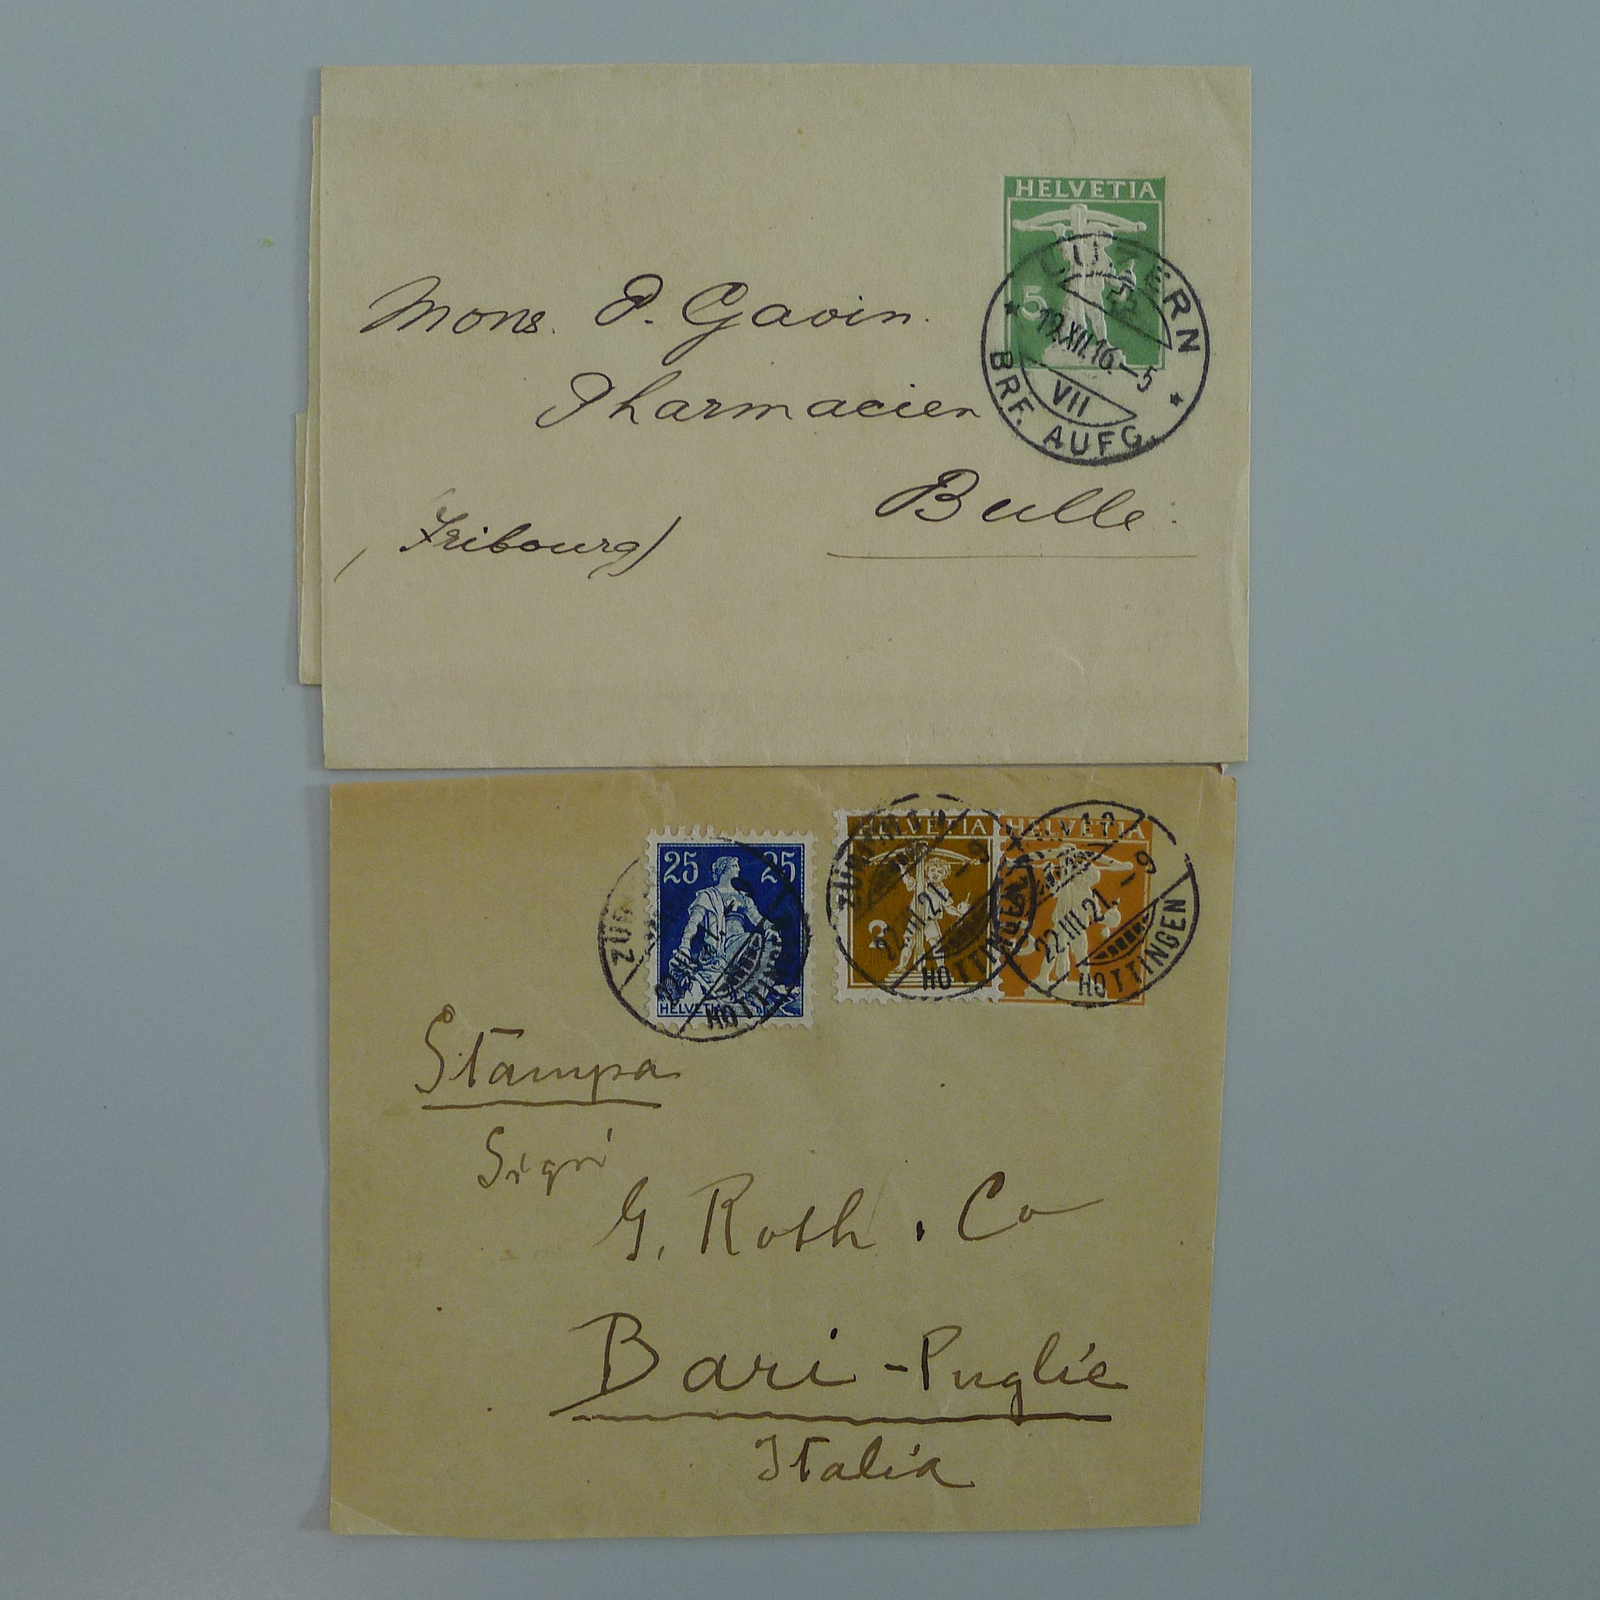 HELVETIA
5
LUZERN
12.XII.16.-5
VII
BRF. AUFG.
Mons. P. Gavin.
Pharmacien
Bulle.
(Fribourg)
25 25
HELVETIA
HOTTINGEN
HELVETIA
HOTTINGEN
HELVETIA
22.III.21.-9
HOTTINGEN
Stampa
Sigri
G. Roth. Co
Bari-Puglie
Italia